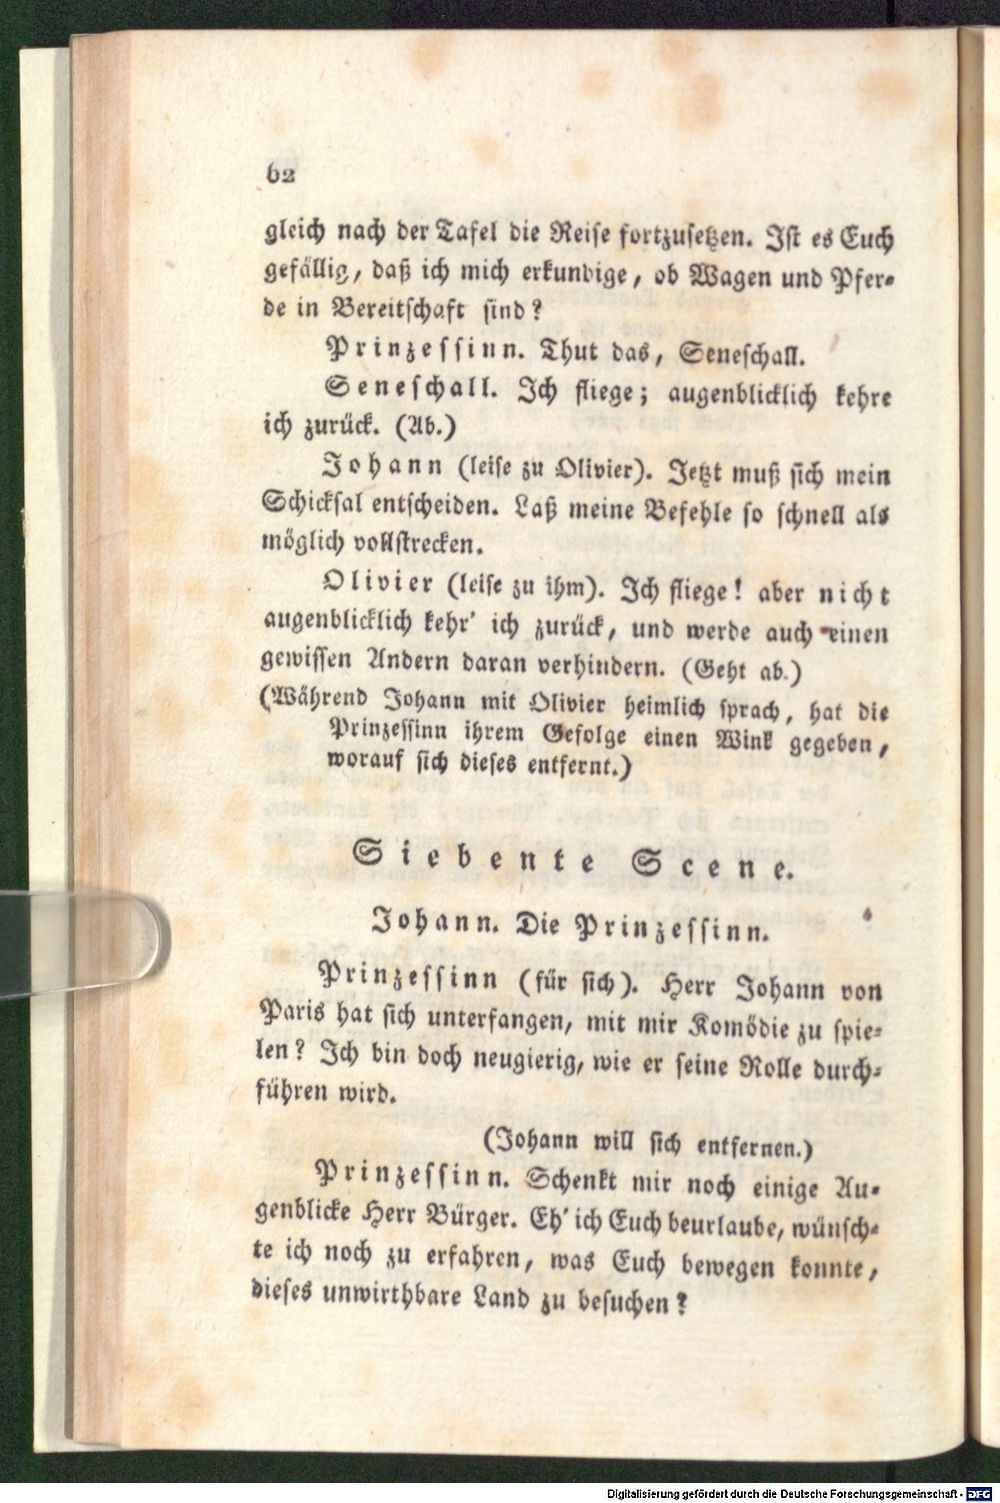 62
gleich nach der Tafel die Reise fortzusetzen. Ist es Euch
gefällig, daß ich mich erkundige, ob Wagen und Pfer-
de in Bereitschaft sind?
Prinzessinn. Thut das, Seneschall.
Seneschall. Ich fliege; augenblicklich kehre
ich zurück. (Ab.)
Johann (leise zu Olivier). Jetzt muß sich mein
Schicksal entscheiden. Laß meine Befehle so schnell als
möglich vollstrecken.
Olivier (leise zu ihm). Ich fliege! aber nicht
augenblicklich kehr' ich zurück, und werde auch einen
gewissen Andern daran verhindern. (Geht ab.)
(Während Johann mit Olivier heimlich sprach, hat die
Prinzessinn ihrem Gefolge einen Wink gegeben,
worauf sich dieses entfernt.)
Siebente Scene.
Johann. Die Prinzessinn.
Prinzessinn (für sich). Herr Johann von
Paris hat sich unterfangen, mit mir Komödie zu spie-
len? Ich bin doch neugierig, wie er seine Rolle durch-
führen wird.
(Johann will sich entfernen.)
Prinzessinn. Schenkt mir noch einige Au-
genblicke Herr Bürger. Eh' ich Euch beurlaube, wünsch-
te ich noch zu erfahren, was Euch bewegen konnte,
dieses unwirthbare Land zu besuchen?
Digitalisierung gefördert durch die Deutsche Forschungsgemeinschaft - DFG